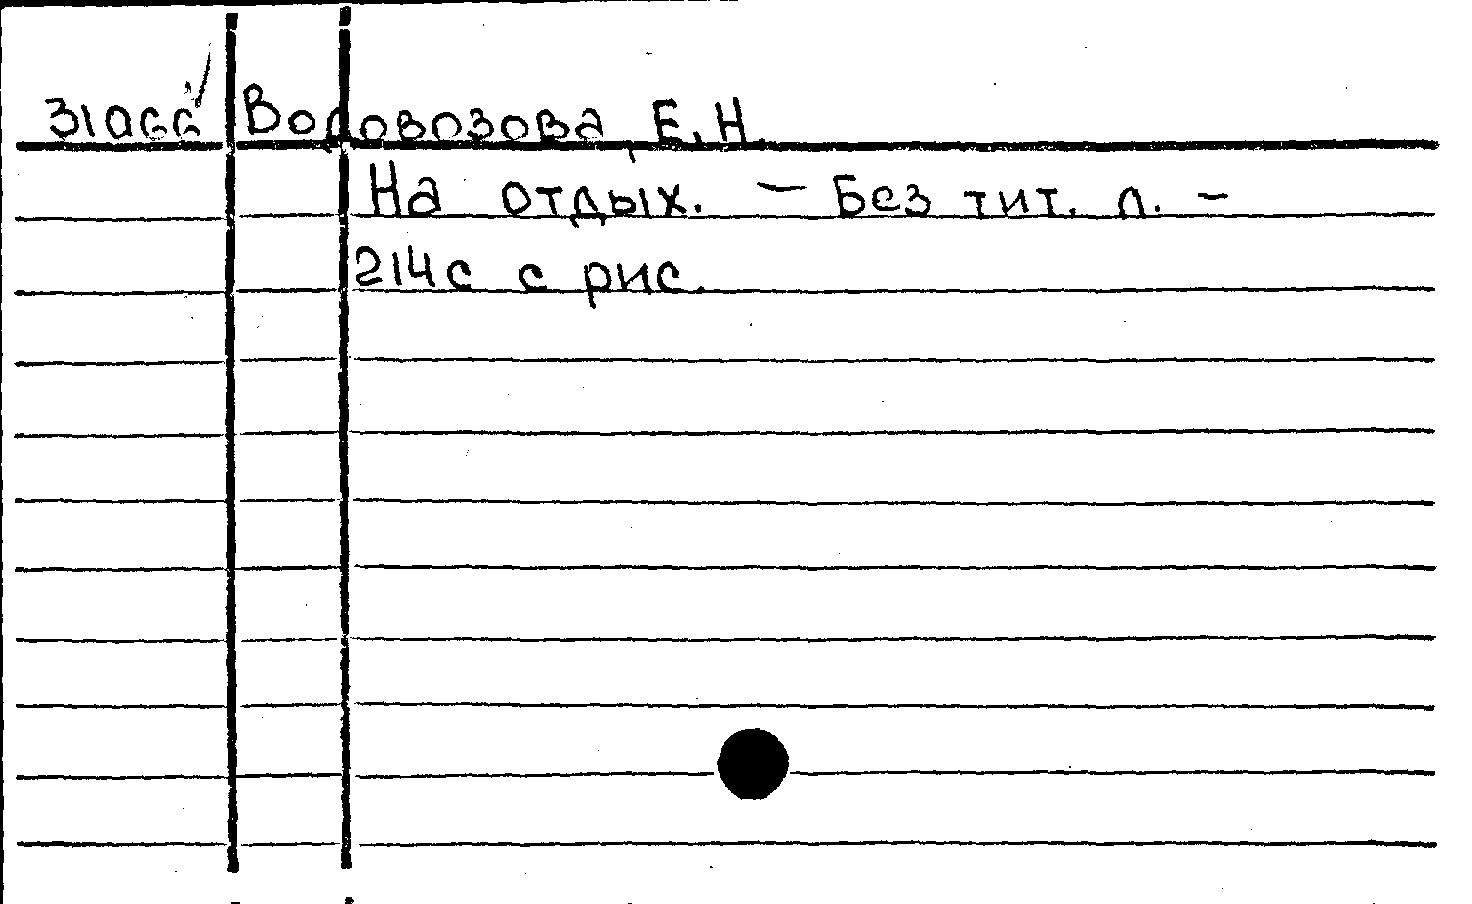 31066 Водовозова, Е.Н.
На отдых. – Без тит. л. –
214с с рис.